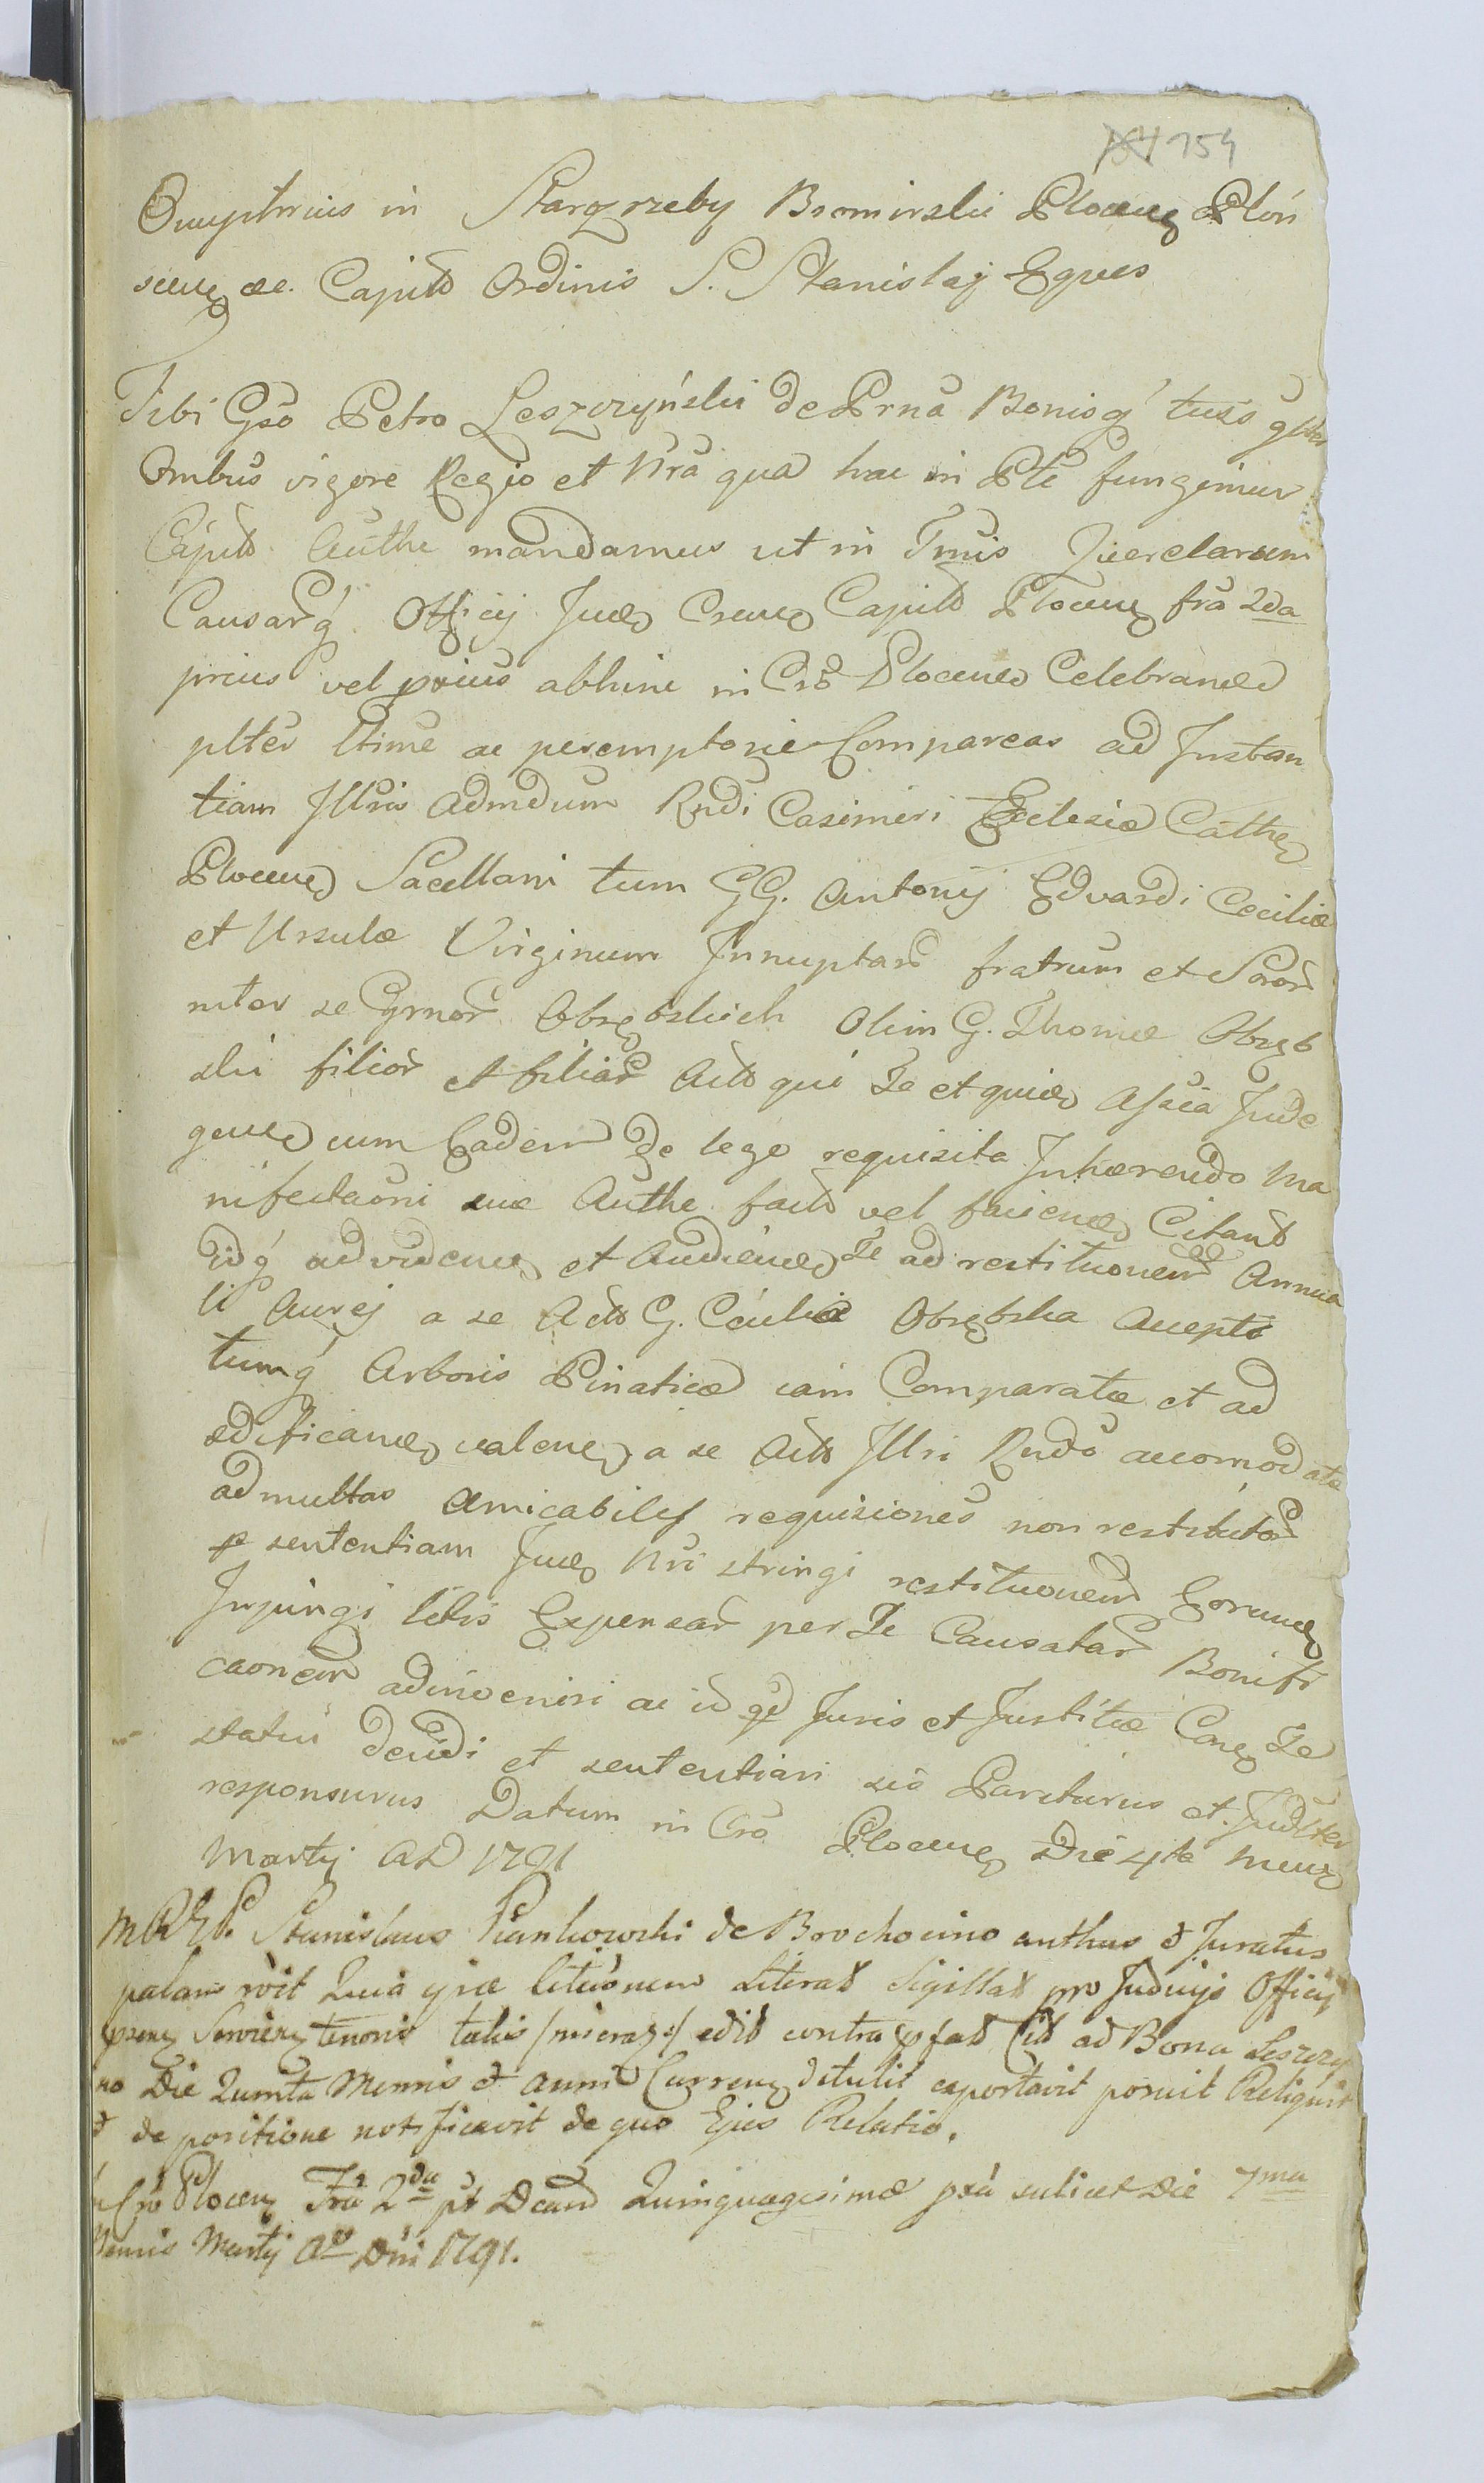 154 154
Onuphrius in Starozrzeby Bromirski Plocens Płoń
scens ac. Capit Ordinis S. Stanislaj Eques
Tibi Gso Petro Leszczyński de Prna Bonisq tuis
Ombus vigore Regio et Nra qua hac in Pte fungimur
Capit Authe mandamus ut in Tmis Querelarum
Causarq Officij Juds Csens Capit Plocens fra 2da
prius vel prius abhinc in Cro Plocens Celebrand
plter ltime ac peremptorie Compareas ad Instan
tiam Illris Admdum Rndi Casimiri Ecclesiæ Cathe
Plocens Sacellani tum GG. Antonij Edvardi Ceciliæ
et Ursulæ Virginum Innuptar fratrum et Soror
inter se Grmor Obrębskich Olim G. Thomæ Obręb
ski filior et filiar Act qui Te et quid Assia Inde
gens cum Eadem de lege requisita Inhærendo Ma
nifestaoni suæ Authe fact vel faciend Citant
idq ad videns et Audiend Te ad restituonem Annua
li Aurej a se Act G. Cecilia Obrębska Accepti
tumq Arboris Pinaticæ iam Comparatæ et ad
ædificand valens a se Act Illri Rndo accomodatæ
ad multas Amicabiles requisiones non restitutor
p sententiam Juds Nri stringi restituonem Eorund
Injungi litis Expensar per Te Causatar Bonifi
caonem adinveniri ac id qd Juris et Justitiæ Conc Te
statui decidi et sententiari sis Pariturus et Judlter
responsurus Datum in Cro Plocens Die 4ta Mens
Martij AD 1791
Stanislaus Piankowski de Brochocino authus & Juratus
palam roit Quia ipse litiônem Literat Sigillat pro Judicijs Officij
prens Serviens tenoris talis edit contra pfat Cit ad Bona Leszczy
no Die Quinta Mensis & anni Currens detulit exportavit posuit Reliquit
& de positione notificavit de quo Ejus Relatio.
Cro Plocen Fra 2da pt Dcam Quinquagesimæ pxa scilicet Die 7ma
Mensis Martij Ao Dni 1791.